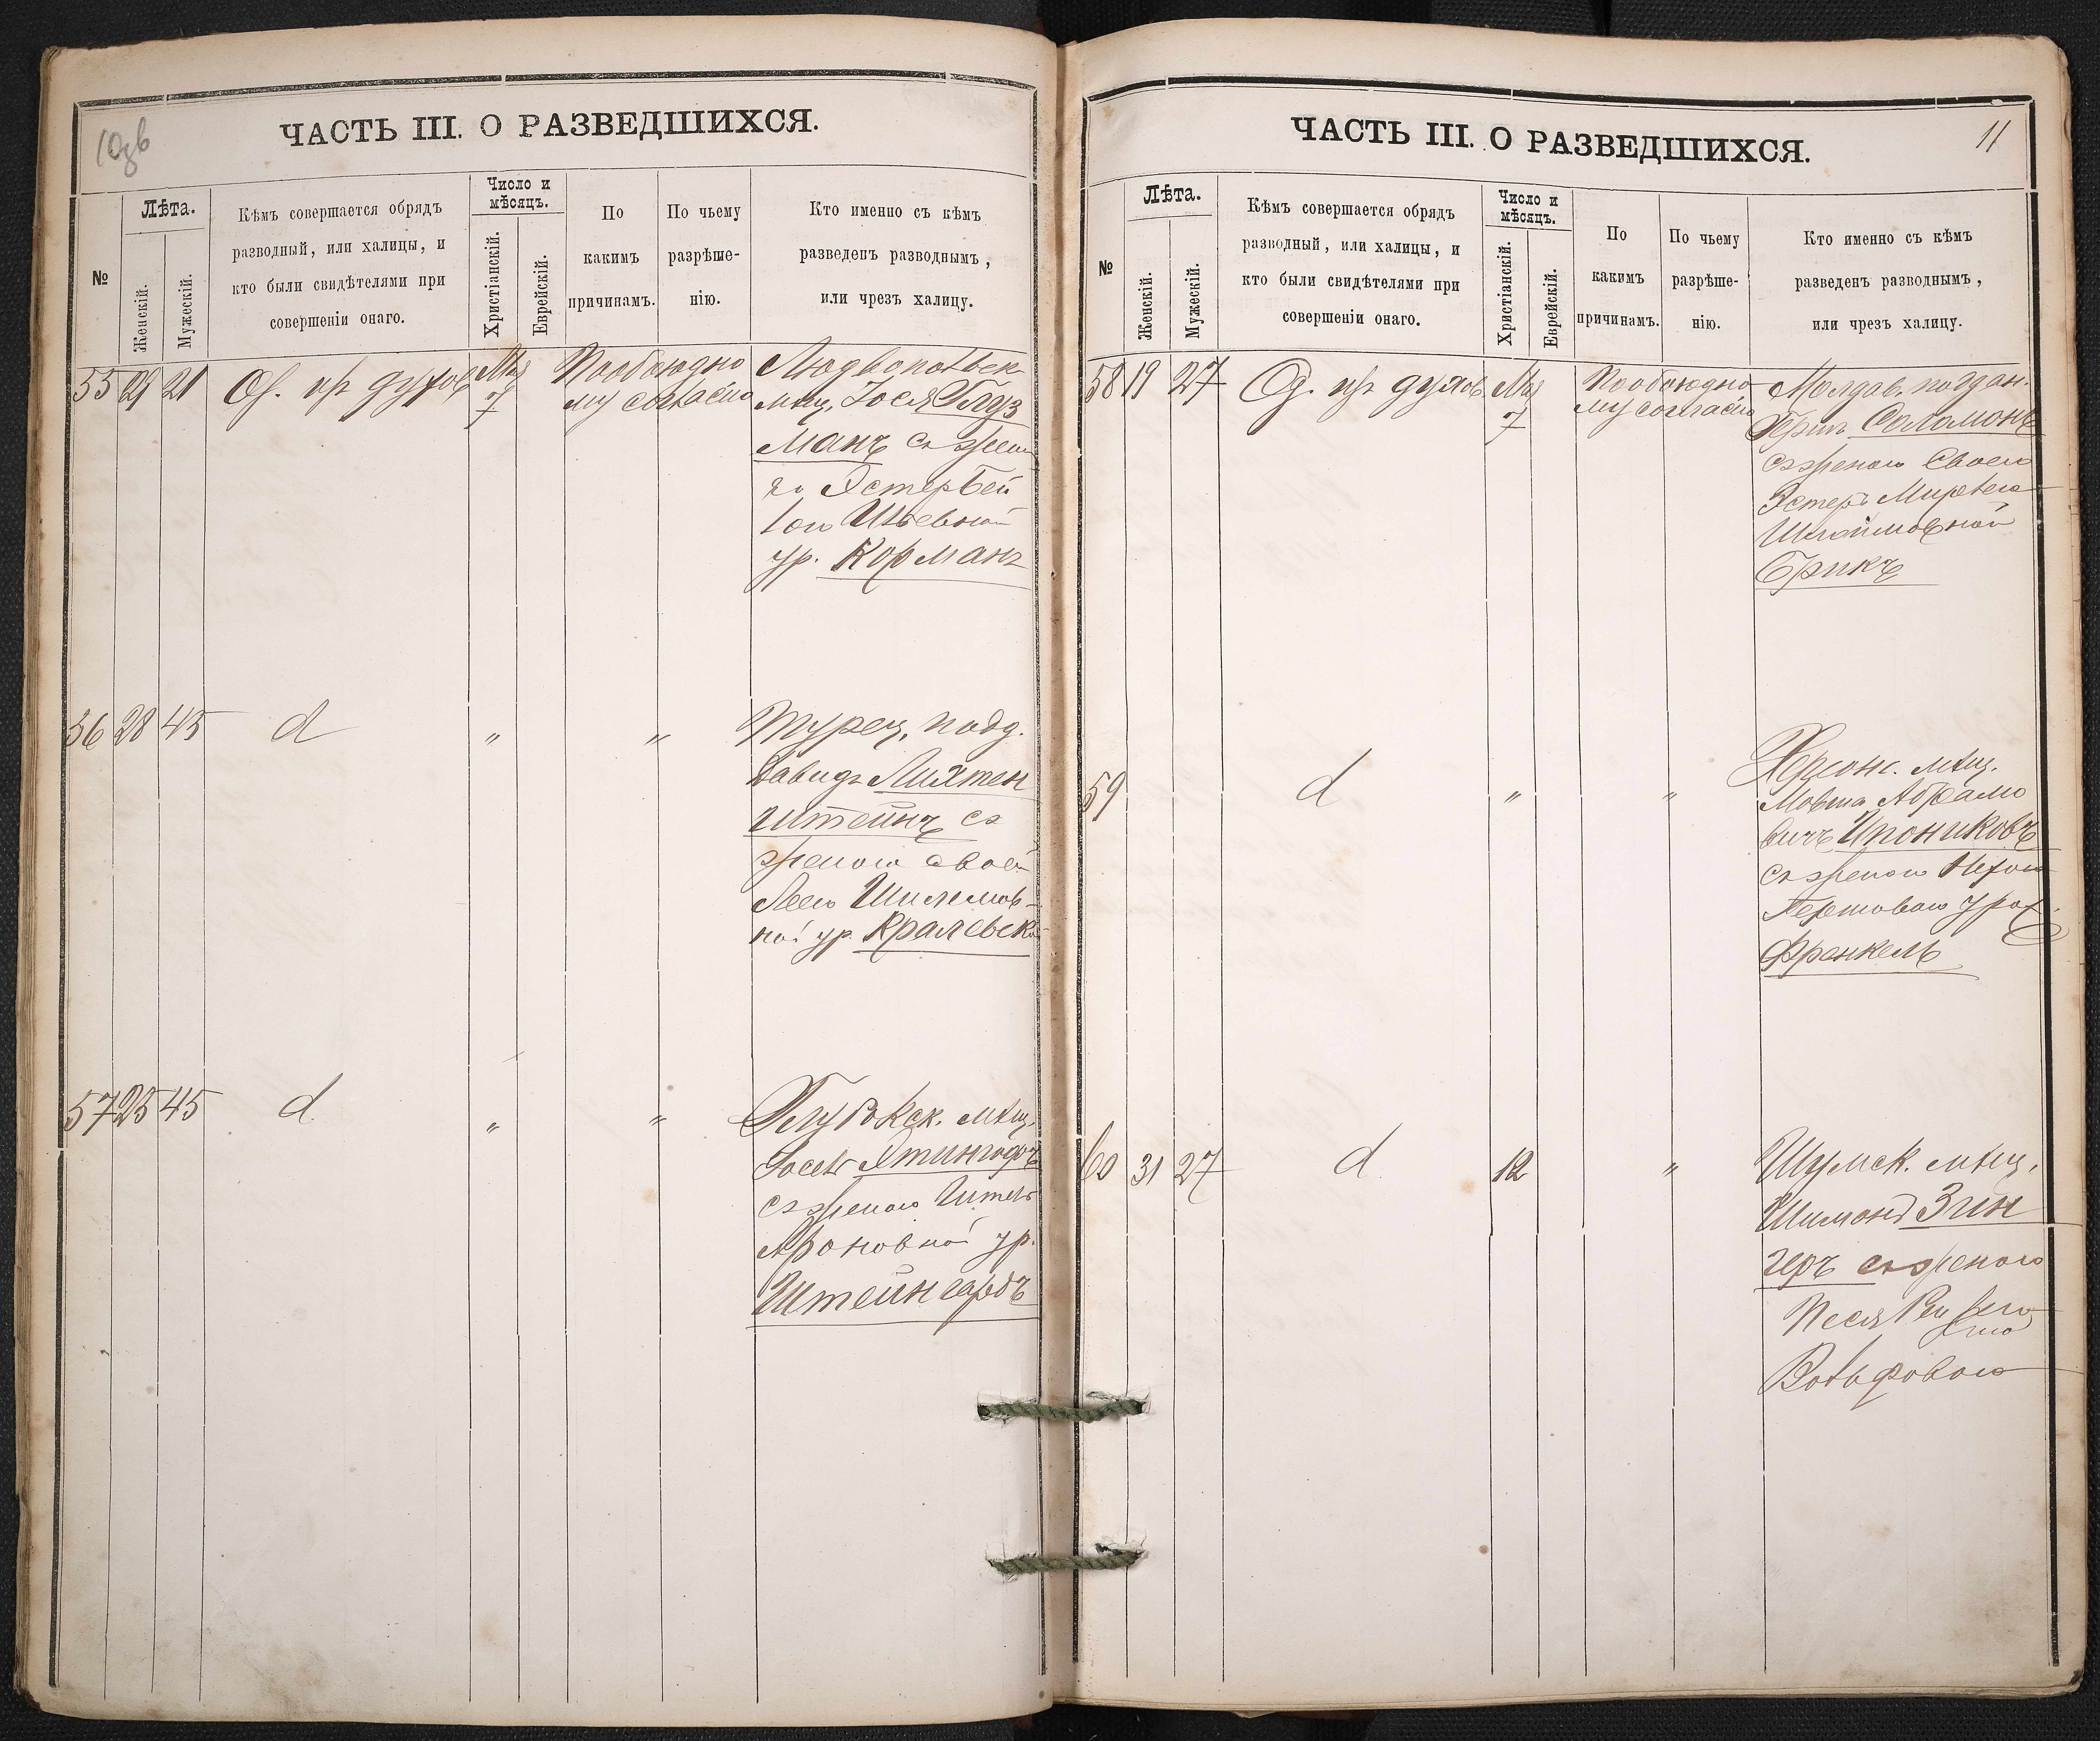 10зв
ЧАСТЬ III. О РАЗВЕДШИХСЯ.
№
Лѣта.
Женскій.
Мужескій.
Кѣмъ совершается обрядъ
разводный, или халицы, и
кто были свидѣтелями при
совершеніи онаго.
Число и
мѣсяцъ.
Христіанскій.
Еврейскій.
По
какимъ
причинамъ.
По чьему
разрѣше-
нію.
Кто именно съ кѣмъ
разведенъ разводнымъ,
или чрезъ халицу.
55 21 Од. пр духов Мая
7
Пообоюдно
му согласію
мѣщ. Іося Глуз
манъ съ жено
ю Эстер Бей
ур. Корманъ
56 28 45 d " "
Турец. подд.
Давидъ Лихтен
штейнъ съ
женою своей
Леею Шилемов-
ной ур. Кралевск
57 25 45 d " "
мѣщ.
съ женою
Ароновной ур.
Штейнгардъ
11
ЧАСТЬ III. О РАЗВЕДШИХСЯ.
№
Лѣта.
Женскій.
Мужескій.
Кѣмъ совершается обрядъ
разводный, или халицы, и
кто были свидѣтелями при
совершеніи онаго.
Число и
мѣсяцъ.
Христіанскій.
Еврейскій.
По
какимъ
причинамъ.
По чьему
разрѣше-
нію.
Кто именно съ кѣмъ
разведенъ разводнымъ,
или чрезъ халицу.
58 19 27 Од. пр духов Мая
7
Пообоюдно
му согласію
Молдав. поддан.
Герш Соломонъ
съ женою своею
Эстеръ
Шлоймовной
Брикъ
59 d " "
Херсон. мѣщ.
Мовша Абрамо
вичъ
съ женою
Гершовою урож.
Френкель
60 31 27 d 12 "
Шумск. мѣщ.
Шимонъ Зин
геръ съ женою
Песя
Вольфовою